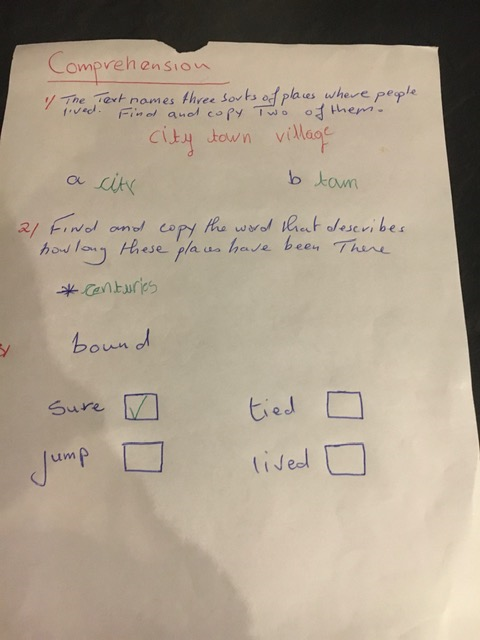 Comprehension
1/ The Text names three sorts of places where people
lived. Find and copy Two of them.
city town village
a city b tam
2/ Find and copy the word that describes
how long these places have been There
* centuries
bound
sure ✓ tied
jump lived